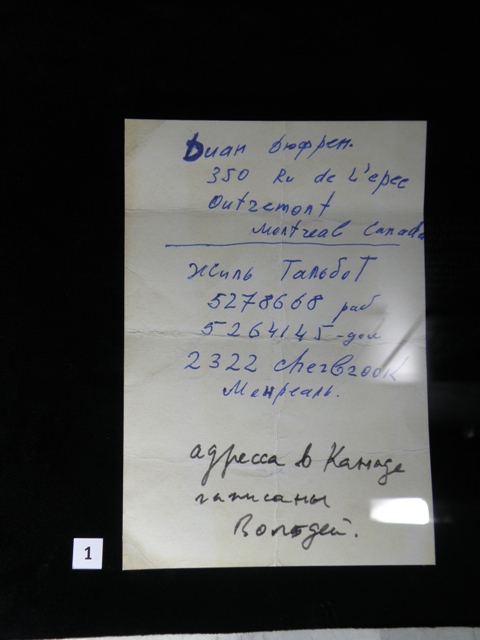 Диан Дюфрен.
350 Ru de L'epee
Outremont
Montreal Canada
Жиль Тальбот
5278668 раб
5264145-дом
2322 cherbrook
Монреаль.
адресса в Канаде
написаны
Володей.
1